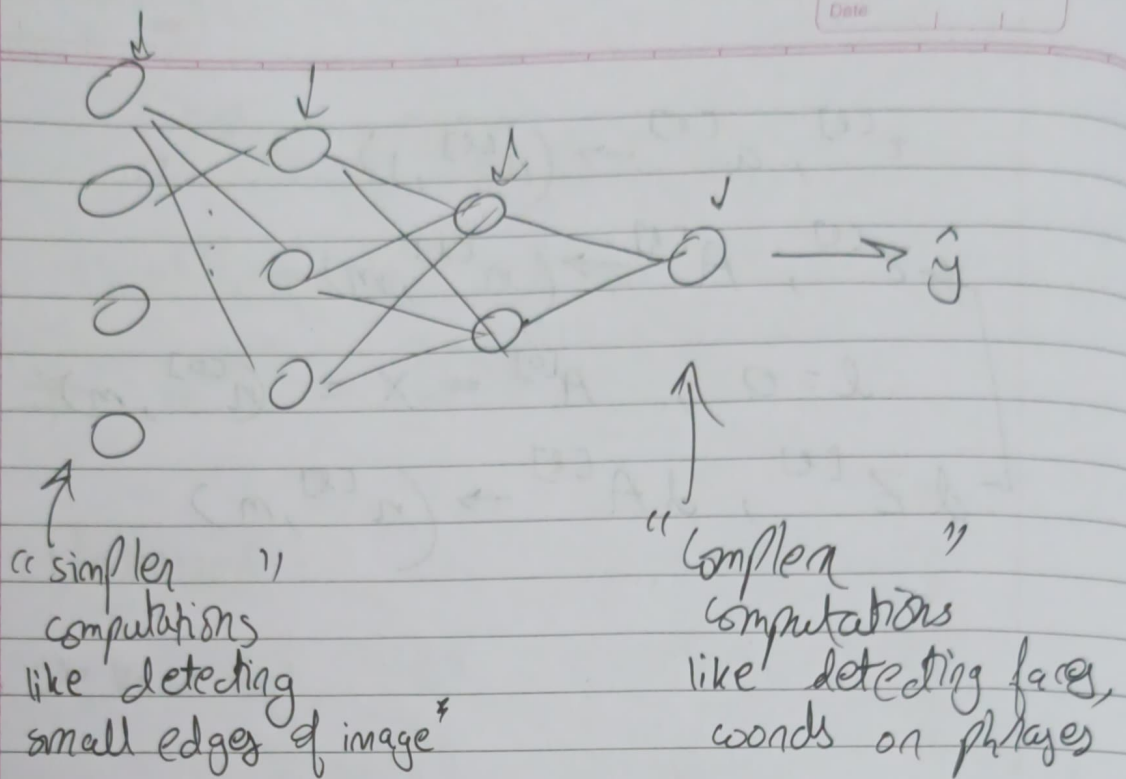 Date
ŷ
"simpler"
computations
like detecting
small edges of image*
"Complex"
computations
like detecting faces,
words or phrases